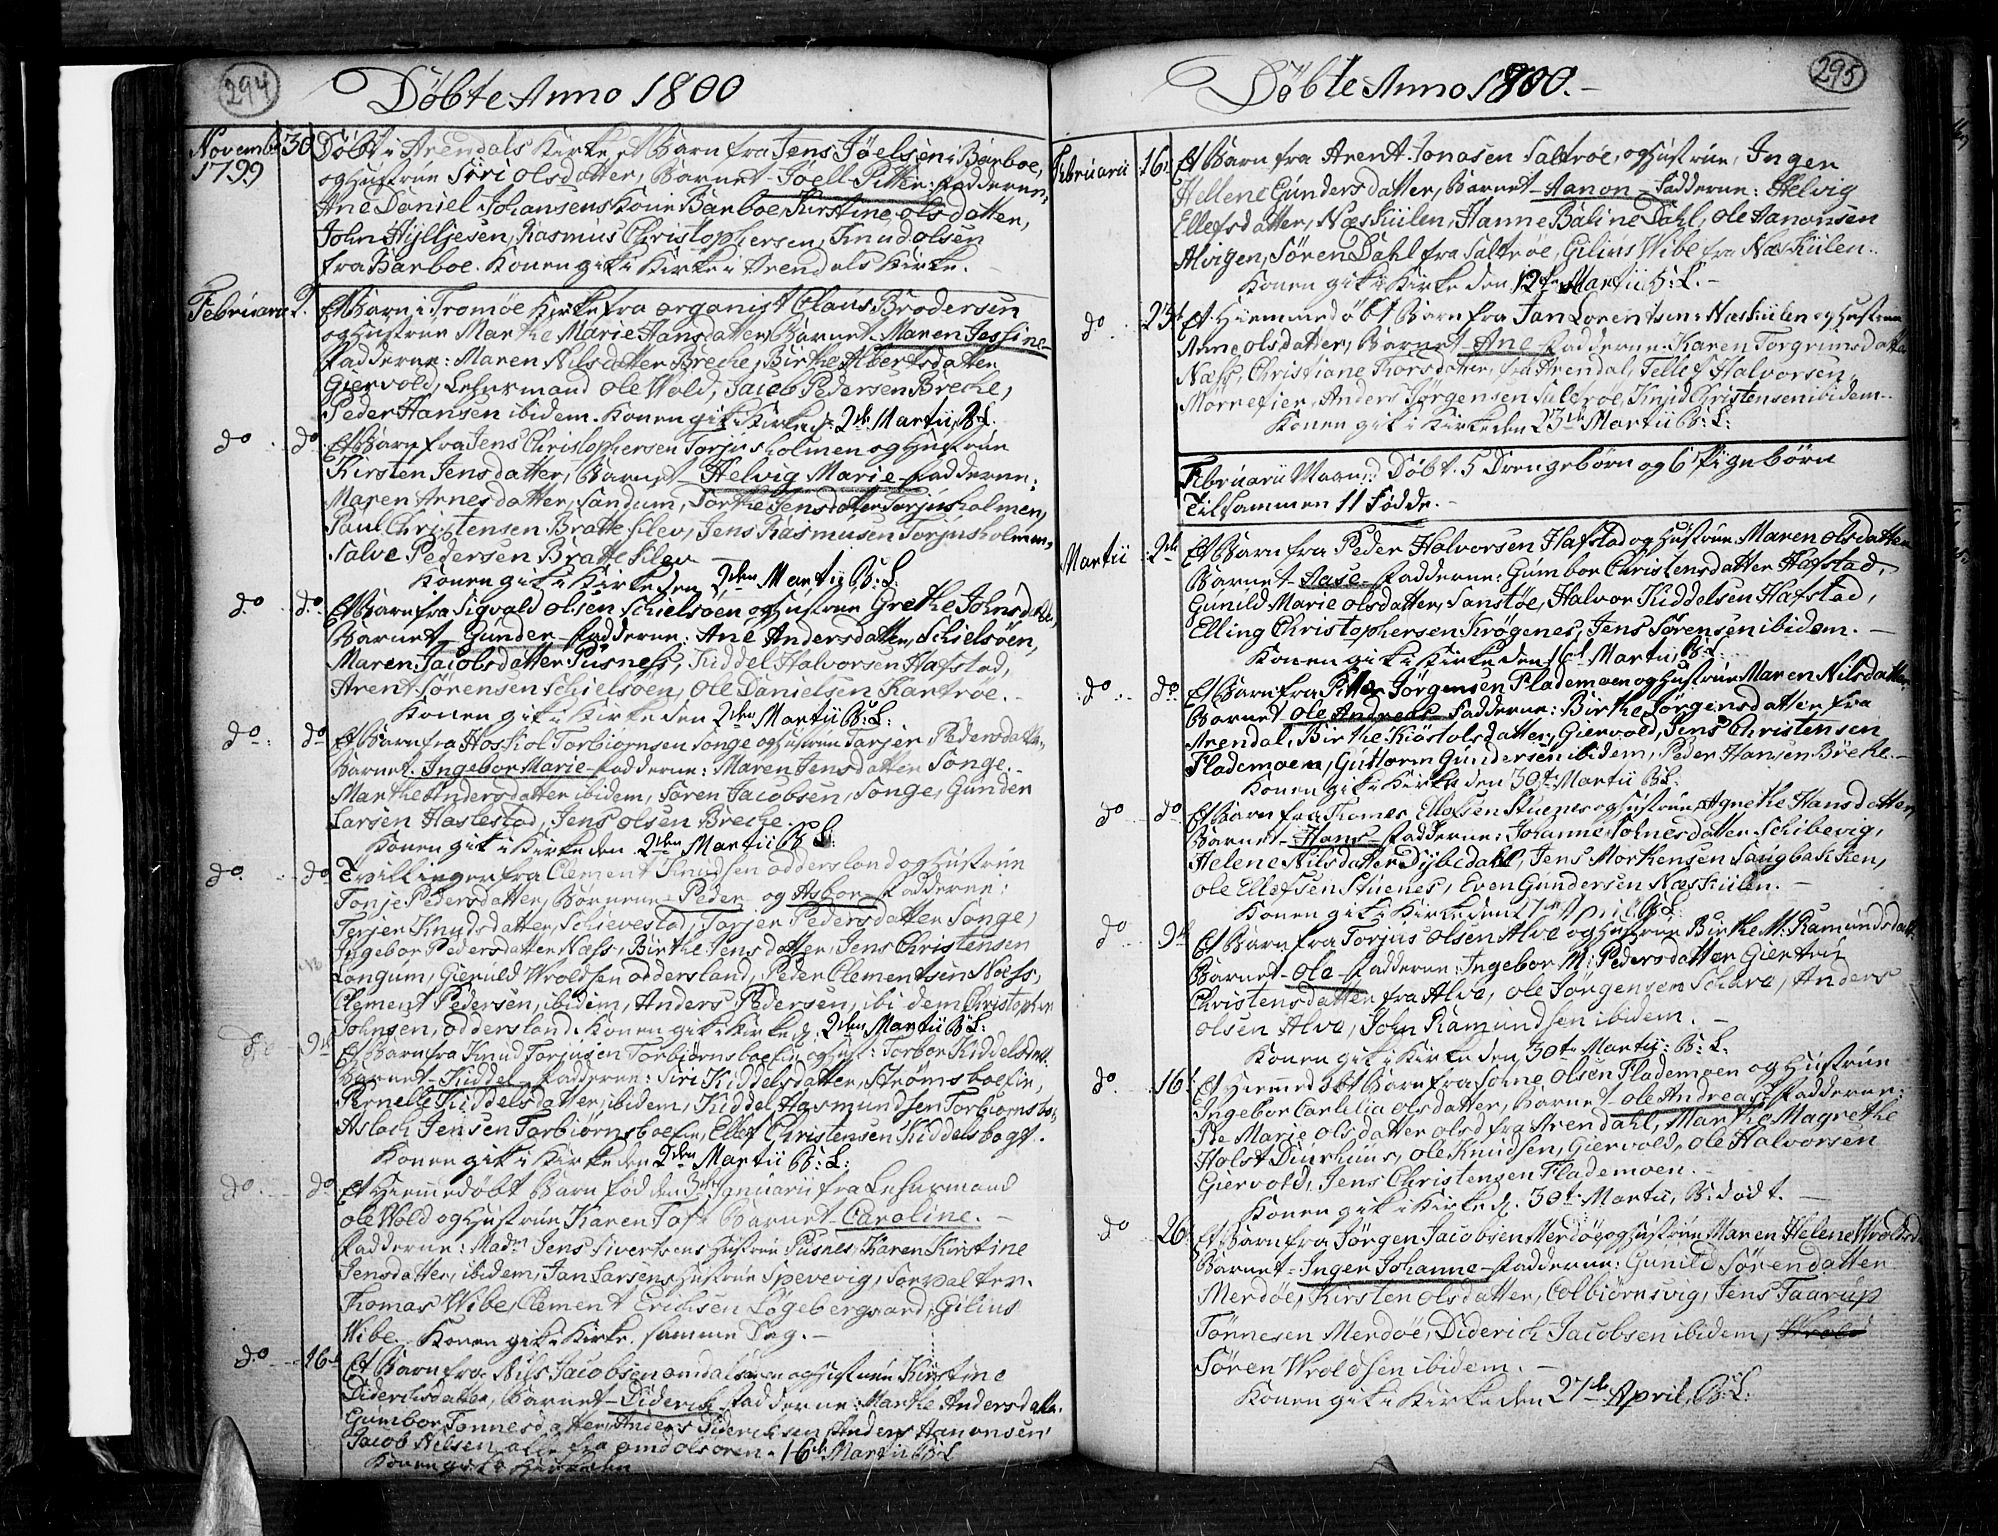 294
Döbte Anno 1800
Novemb: 30
1799
Döbt i Arendals Kirke et Barn fra Jens Jöelsen i Barboe,
og Hustrue Siri Olsdatter, Barnet Joell Pitter: Fadderne:
Ane Daniel Johansens Kone Barboe, Kirstine Olsdatter,
John Hylljesen, Rasmus Christophersen, Knud Olsen
fra Barboe. Konen gik i Kirke i Arendals Kirke.
Februarii 2.
Et Barn i Tromöe Kirke fra organist Claus Brodersen
og Hustrue Marthe Marie Hansdatter, Barnet Maren Jessine
Fadderne: Maren Nilsdatter Breche, Birthe Albertsdatter
Giervold, Lehnsmand Ole Wold, Jacob Pedersen Breche,
Peder Hansen ibidem. Konen gik i Kirke d: 2de Martii B:L.
do do
Et Barn fra Jens Christophersen Torjusholmen og Hustrue
Kirsten Jensdatter, Barnet Helvig Marie Fadderne:
Maren Arnesdatter, Sandum, Dorthe Jensdatter Torjusholmen,
Paul Christensen Brattekley, Jens Rasmusen Torjusholmen,
Salve Pedersen Brattekley
Konen gik i Kirke den 2den Martii B:L:
do do
Et Barn fra Sigvald Olsen Schielsöen, og Hustrue Grethe Johnsdatter,
Barnet Gunder Fadderne: Ane Andersdatter, Schielsöen,
Maren Jacobsdatter Pusness, Kiddel Halvorsen Hafstad,
Arent Sörensen Schielsöen, Ole Danielsen Kartröe.
Konen gik i Kirke den 2den Martii B:L:
do do
Et Barn fra Hoskol Torbiörnsen Songe og Hustrue Tarjer Pedersdatter,
Barnet Ingebor Marie Fadderne: Maren Jensdatter Songe.
Marthe Andersdatter ibidem, Sören Jacobsen, Songe, Gunder
Larsen Hastestad, Jens Olsen Breche.
Konen gik i Kirke den 2den Martii B:L:
do do
Tvillinger fra Clement Knudsen Oddersland og Hustrue
Tonje Pedersdatter, Börnene Peder og Asbor Fadderne:
Terjer Knudsdatter, Schievestad, Torjer Pedersdatter Songe,
Ingebor Pedersdatter Næss, Birthe Jensdatter, Jens Christensen
Longum, Gieruld Wroldsen Oddersland, Peder Clementsen Noess,
Clement Pedersen, ibidem, Anders Pedersen, ibidem Christopher
Johnsen, Oddersland. Konen gik i Kirke d. 2den Martii B:L:
do 9de
Et Barn fra Knud Torjusen Torbiörnsboe og Hust: Torbor Kiddelsdat:
Barnet Kiddel Fadderne: Siri Kiddelsdatter, Strömsboe,
Pernelle Kiddelsdatter, ibidem, Kiddel Hasmundsen Torbiörnsbo.
Aslach Jensen Torbiörnsboe, Ellef Christensen Kiddelsbogt.
Konen gik i Kirke den 2den Martii B:L:
do do
Et Hiemmedöbt Barn föd den 3die Januarii fra Lehnsmand
Ole Wold og Hustrue Karen Toft Barnet Caroline.
Fadderne: Madm Jens Sivertsens Hustrue Pusnes, Karen Kirstine
Jensdatter, ibidem, Jan Larsens Hustrue Spevevig, Sorvalter.
Thomas Wibe, Clement Erichsen Lögebergaard, Gilius
Wibe. Konen gik i Kirke samme Dag.
do 16de
Et Barn fra Nils Jacobsen Omdalsören og Hustrue Kirstine
Diderichsdatter, Barnet Diderich Fadderne: Marthe Andersdatter.
Gumbor Tönnesdatter, Anders Diderichsen, Anders Aanonsen,
Jacob Nilsen alle fra Omdolsoren. 16de Martii B:L
Konen gik i Kirke den
295
Döbte Anno 1800.
Februarii 16.
Et Barn fra Arent Jonasen Saltröe, og Hustrue, Inger
Hellene Gundersdatter, Barnet Aanon Fadderne: Helvig
Ellefsdatter, Næskiilen, Hanne Baline Dahl, Ole Aanonsen
Alvigen, Sören Dahl fra Saltröe, Gilius Wibe fra Næskiilen.
Konen gik i Kirke den 12te Martii B:L.
do 23d
Et Hiemmedöbt Barn fra Jan Lorentsen Næskiilen og Hustrue
Anne Olsdatter, Barnet Ane Fadderne: Karen Torgrimsdatter
Næss, Christiane Thorsdatter, fra Arendal, Tellef Halvorsen,
Morrefier, Anders Jörgensen Saltröe, Knud Christensen ibidem.
Konen gik i Kirke den 23de Martii B:L:
Februarii Maan: Döbt 5 Drengebörn og 6 Pigebörn
Tilsammen 11 Födde.
Martii 2de
Et Barn fra Peder Halvorsen Hafstad og Hustrue Maren Olsdatter
Barnet Aase Fadderne: Gumbor Christensdatter Hafstad,
Gunild Marie Olsdatter, Sanstöe, Halvor Kiddelsen Hafstad,
Elling Christophersen Krögenes, Jens Sörensen ibidem.
Konen gik i Kirke den 16d Martii, B:L.
do do
Et Barn fra Pitter Jörgensen Flademoen og Hustrue Maren Nilsdatter
Barnet Ole Andreas Fadderne: Birthe Jörgensdatter fra
Arendal, Birthe Kiöstolsdatter, Giervold, Jens Christensen
Flademoen, Guttorm Gundersen ibidem, Peder Hansen Breche.
Konen gik i Kirke den 30te Martii B:L.
do do
Et Barn fra Thomes Ellefsen Stuenes og Hustrue Agnethe Hansdatter,
Barnet Hans Fadderne: Johanne Tohnesdatter Schibevig,
Helene Nilsdatter Dybedahl, Jens Morthensen Saugbakken,
Ole Ellefsen Stuenes, Even Gundersen Næskiilen.
Konen gik i Kirke den 1ste April B:L.
do 9de
Et Barn fra Torjus Olsen Alve og Hustrue Birthe M: Ramundsdatt:
Barnet Ole Fadderne: Ingebor M: Pedersdatter Giertrü
Christensdatter fra Alve, Ole Jorgensen Schare, Anders
Olsen Alve, John Ramundsen ibidem.
Konen gik i Kirke den 30te Martii: B:L.
do 16d
Et Hiemmedöbt Barn fra Tohne Olsen Flademoen og Hustrue
Ingebor Carelilia Olsdatter, Barnet Ole Andreas Fadderne:
Ide Marie Olsdatter Olsd fra Arendahl, Marthe Magrethe
Holst Diurhuus, Ole Knudsen, Giervold, Ole Halvorsen
Giervold, Jens Christensen Flademoen.
Konen gik i Kirke d. 30te Martii, B: dödt.
do 26
Et Barn fra Jörgen Jacobsen Merdöe, og Hustrue Maren Helene Wroldsd:
Barnet Inger Johanne Fadderne: Gunild Sörendatter
Merdöe, Kirsten Olsdatter, Colbiörnsvig, Jens Taarup
Tönnesen Merdöe, Diderich Jacobsen ibidem,
Sören Wroldsen ibidem.
Konen gik i Kirke den 27de April, B:L: